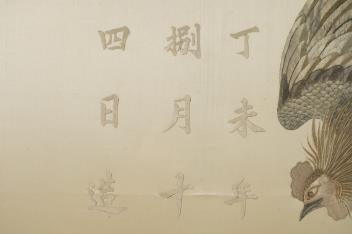 丁未年
捌月十
四日造